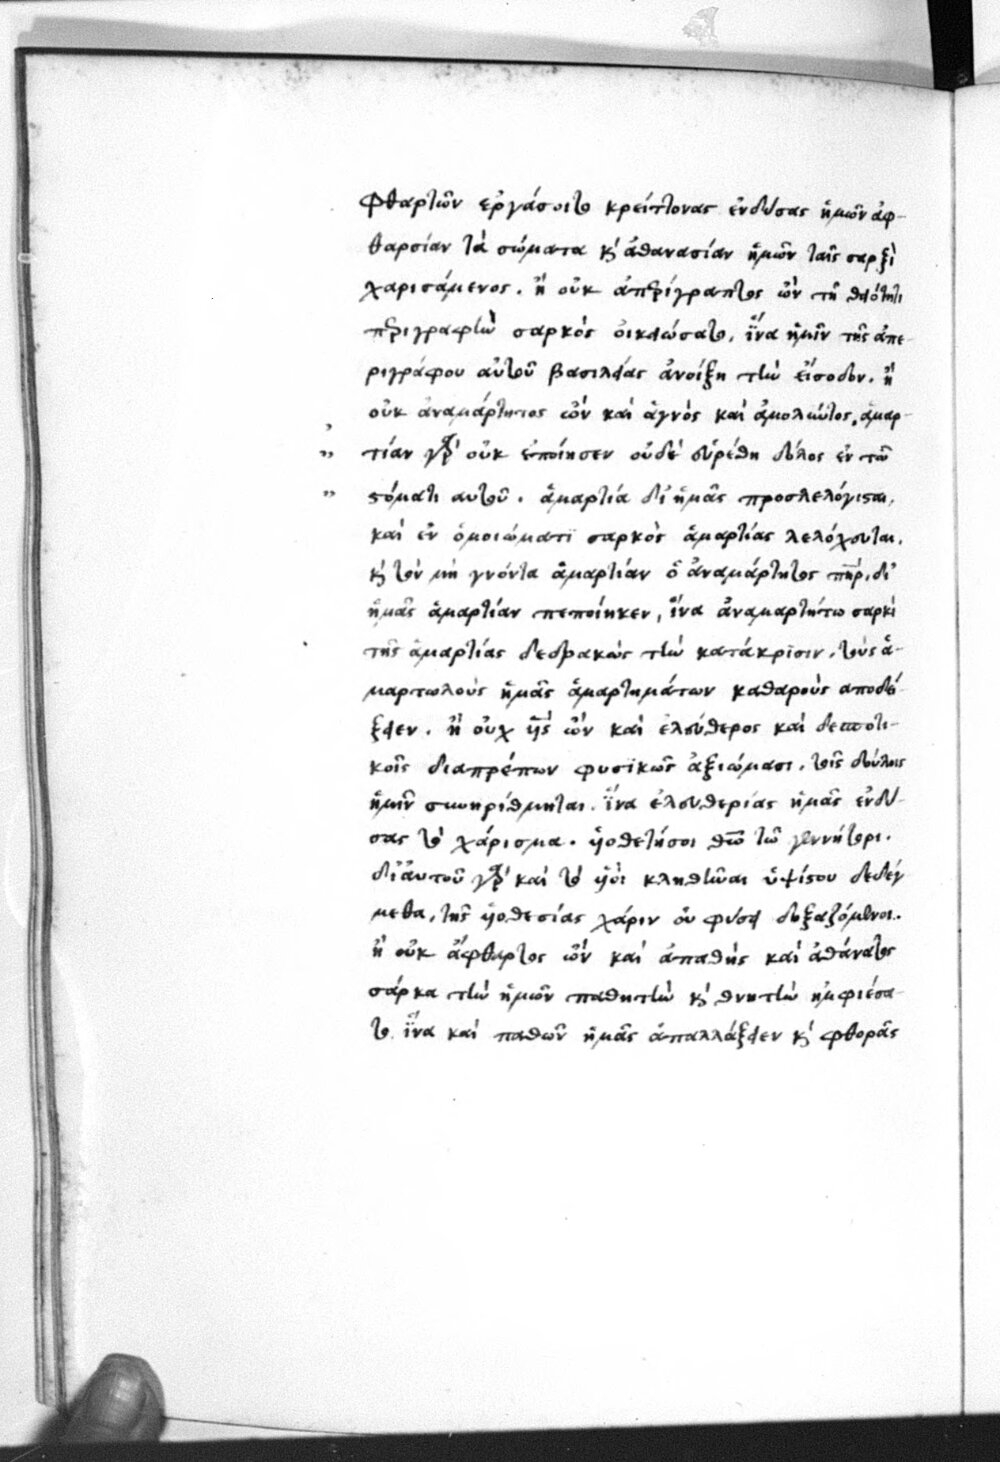 φθαρτῶν ἐργάσοιτο κρείττονας ἐνδύσας ἡμῶν ἀφ-
θαρσίαν τὰ σώματα κ̀ ἀθανασίαν ἡμῶν ταῖς σαρξὶ
χαρισάμενος. ἢ οὐκ ἀπερίγραπτος ὢν τῇ θεότητι
περιγραφὴν σαρκὸς οἰκειώσατο, ἵνα ἡμῖν τῆς ἀπε-
ριγράφου αὐτοῦ βασιλείας ἀνοίξη τὴν εἴσοδον. ἢ
οὐκ ἀναμάρτητος ὢν καὶ ἁγνὸς καὶ ἀμόλυντος, ἁμαρ-
τίαν γὰρ οὐκ ἐποίησεν οὐδὲ εὑρέθη δόλος ἐν τῶ
στόματι αυτοῦ. ἁμαρτία δι' ἡμᾶς προσλελόγισται,
καὶ ἐν ὁμοιώματϊ σαρκὸς ἁμαρτίας λελόχευται.
κ̀ τὸν μὴ γνόντα ἁμαρτίαν ὁ ἀναμάρτητος πη̄ρ, δι'
ἡμᾶς ἁμαρτίαν πεποίηκεν, ἵνα ἀναμαρτήτω σαρκὶ
τῆς ἁμαρτίας δεδρακὼς τὴν κατάκρϊσιν. τοὺς ἁ-
μαρτωλοὺς ἡμᾶς ἁμαρτημάτων καθαροὺς αποδεί-
ξειεν. ἢ οὐχ ὑ̄ς ὢν καὶ ἐλεύθερος καὶ δεσποτι-
κοῖς διαπρέπων φυσϊκῶς ἀξιώμασι. τοῖς δούλοις
ἡμῖν συνηρίθμηται. ἵνα ἐλευθερίας ἡμᾶς ἐνδύ-
σας τὸ χάρισμα. ὑϊοθετήσοι θω̄ τῶ γεννήτορι.
δι' ἀυτοῦ γὰρ καὶ τὸ ὑϊοὶ κληθῆναι ὑψίστου δεδέγ
μεθα, τῆς ὑϊοθεσίας χάριν οὐ φύσει δοξαζόμενοι.
ἢ οὐκ ἄφθαρτος ὢν καὶ ἀπαθὴς καὶ ἀθάνατος
σάρκα τὴν ἡμῶν παθητὴν κ̀ θνητὴν ἠμφιέσα-
το. ἵνα καὶ παθῶν ἡμᾶς ἀπαλλάξειεν κ̀ φθορᾶς